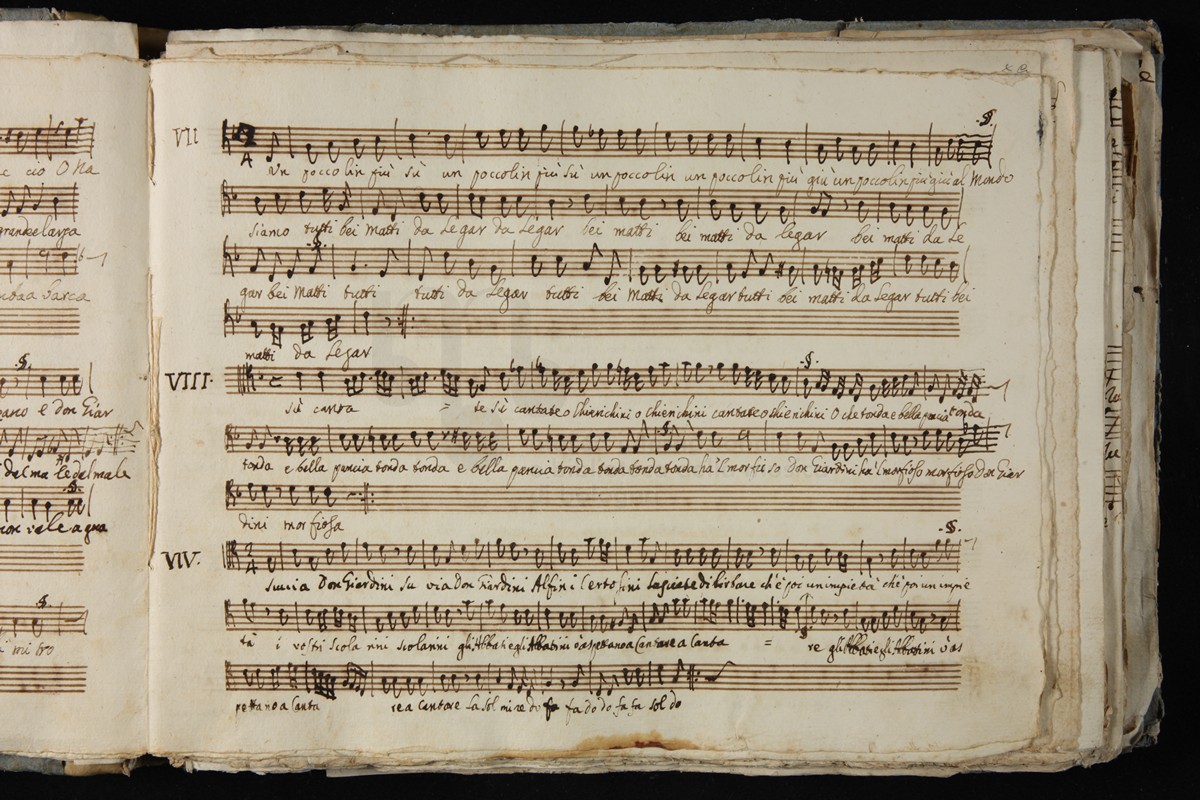 e cio O Na
grande larga
Barca
pano e Don Giar
del ma le del male
non vale a qua
mi tro
VII
Un poccolin più sù un poccolin più sù un poccolin un poccolin più giù un poccolin più giù al Mondo
siamo tutti bei matti da Legar da Legar bei matti bei matti da legar bei matti da Le
gar bei Matti tutti tutti da Legar tutti bei Matti da Legar tutti bei matti da Legar tutti bei
matti da Legar
VIII.
sù canta = te sù cantate o Chierichini o Chierichini cantate o chierichini O che tonda e bella pancia tonda
tonda e bella pancia tonda tonda e bella pancia tonda tonda tonda tonda hà'l morfioso Don Giardini hà'l morfioso morfioso Don Giar
dini morfioso
VIV.
Su via Don Giardini su via Don Giardini Alfin i Certosini lasciate di che è poi un impietà che è poi un impie
tà i vostri scola rini scolarini gli Abbati e gli Abbatini v'aspettano a Cantare a Canta = re gli Abbati e gli Abbatini v'as
pettano a Canta re a Cantare La Sol mi re do fa fa do do fa fa sol do